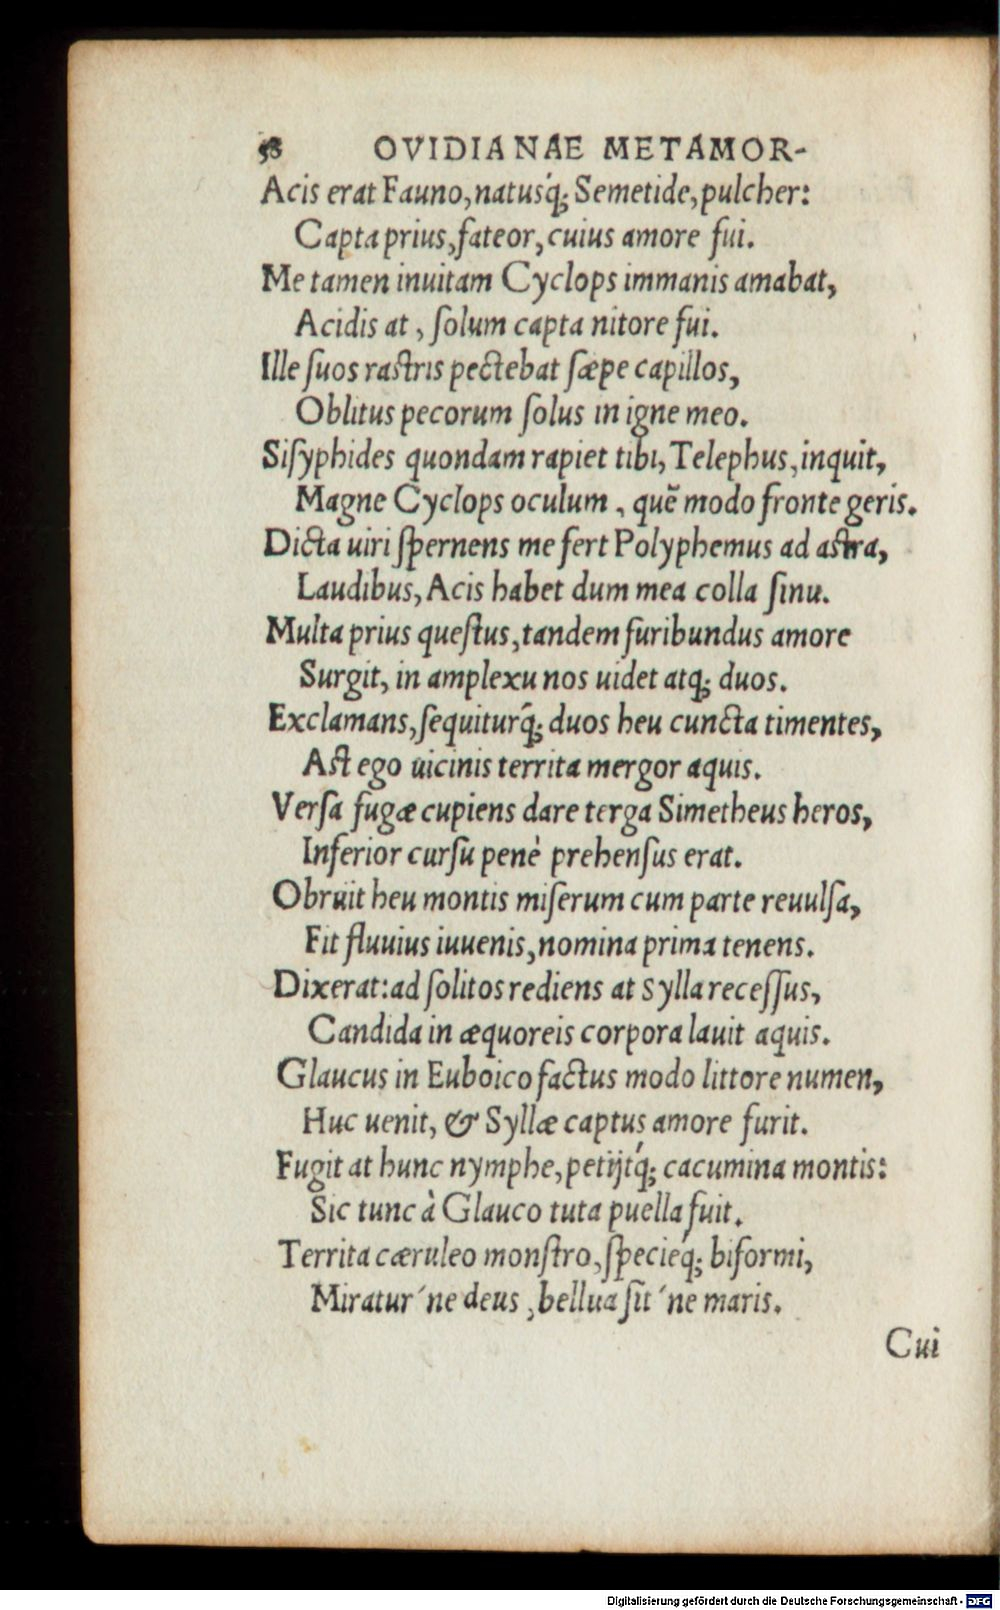 58 OVIDIANAE METAMOR-
Acis erat Fauno, natusq́; Semetide, pulcher:
Capta prius, fateor, cuius amore fui.
Me tamen inuitam Cyclops immanis amabat,
Acidis at, ſolum capta nitore fui.
Ille ſuos rastris pectebat ſæpe capillos,
Oblitus pecorum ſolus in igne meo.
Siſyphides quondam rapiet tibi, Telephus, inquit,
Magne Cyclops oculum, quẽ modo fronte geris.
Dicta uiri ſpernens me fert Polyphemus ad astra,
Laudibus, Acis habet dum mea colla ſinu.
Multa prius queſtus, tandem furibundus amore
Surgit, in amplexu nos uidet atq; duos.
Exclamans, ſequiturq́; duos heu cuncta timentes,
Aſt ego uicinis territa mergor aquis.
Verſa fugæ cupiens dare terga Simetheus heros,
Inferior curſu penè prehenſus erat.
Obruit heu montis miſerum cum parte reuulſa,
Fit fluuius iuuenis, nomina prima tenens.
Dixerat: ad ſolitos rediens at Sylla receſſus,
Candida in æquoreis corpora lauit aquis.
Glaucus in Euboico factus modo littore numen,
Huc uenit, & Syllæ captus amore furit.
Fugit at hunc nymphe, petijtq́; cacumina montis:
Sic tunc à Glauco tuta puella fuit.
Territa cæruleo monſtro, ſpecieq́; biformi,
Miratur´ne deus, bellua ſit´ne maris.
Cui
Digitalisierung gefördert durch die Deutsche Forschungsgemeinschaft - DFG